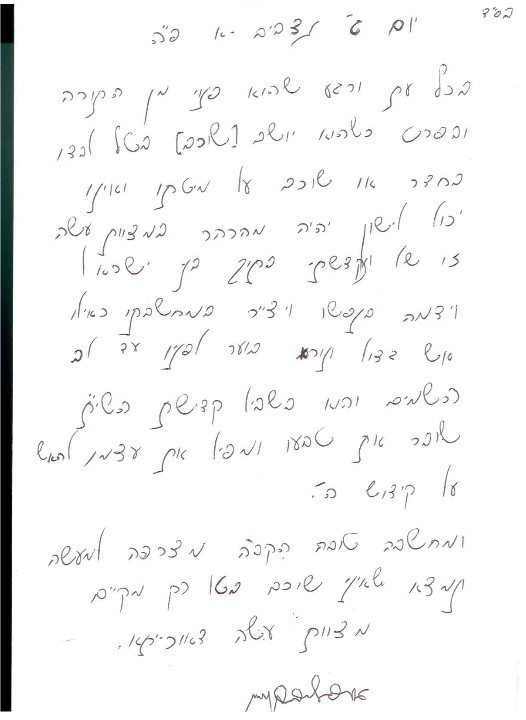 בס"ד
יום ט' נצבים - א פ"ה
בכל עת ורגע שהוא פנוי מן התורה
ובפרט כשהוא יושב [שוכב] בטל לבדו
בחדר או שוכב על מיטתו ואינו
יכול לישון יהיה מהרהר במצוות עשה
זו של ונקדשתי בתוך בני ישראל
וידמה בנפשו ויצייר במחשבתו כאילו
אש גדול ונורא בוער לפניו עד לב
השמים והוא בשביל קדישת השי"ת
שובר את טבעו ומפיל את עצמו להאש
על קידוש ה'.
ומחשבה טובה הקב"ה מצרפה למעשה
נמצא שאינו שוכב בטל רק מקיים
מצוות עשה דאורייתא.